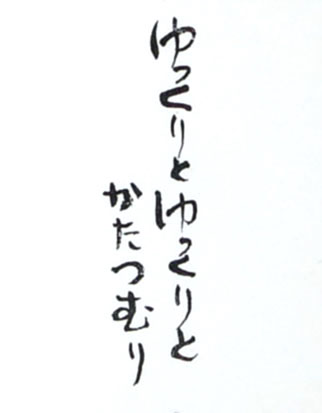 ゆっくりとゆっくりと
かたつむり